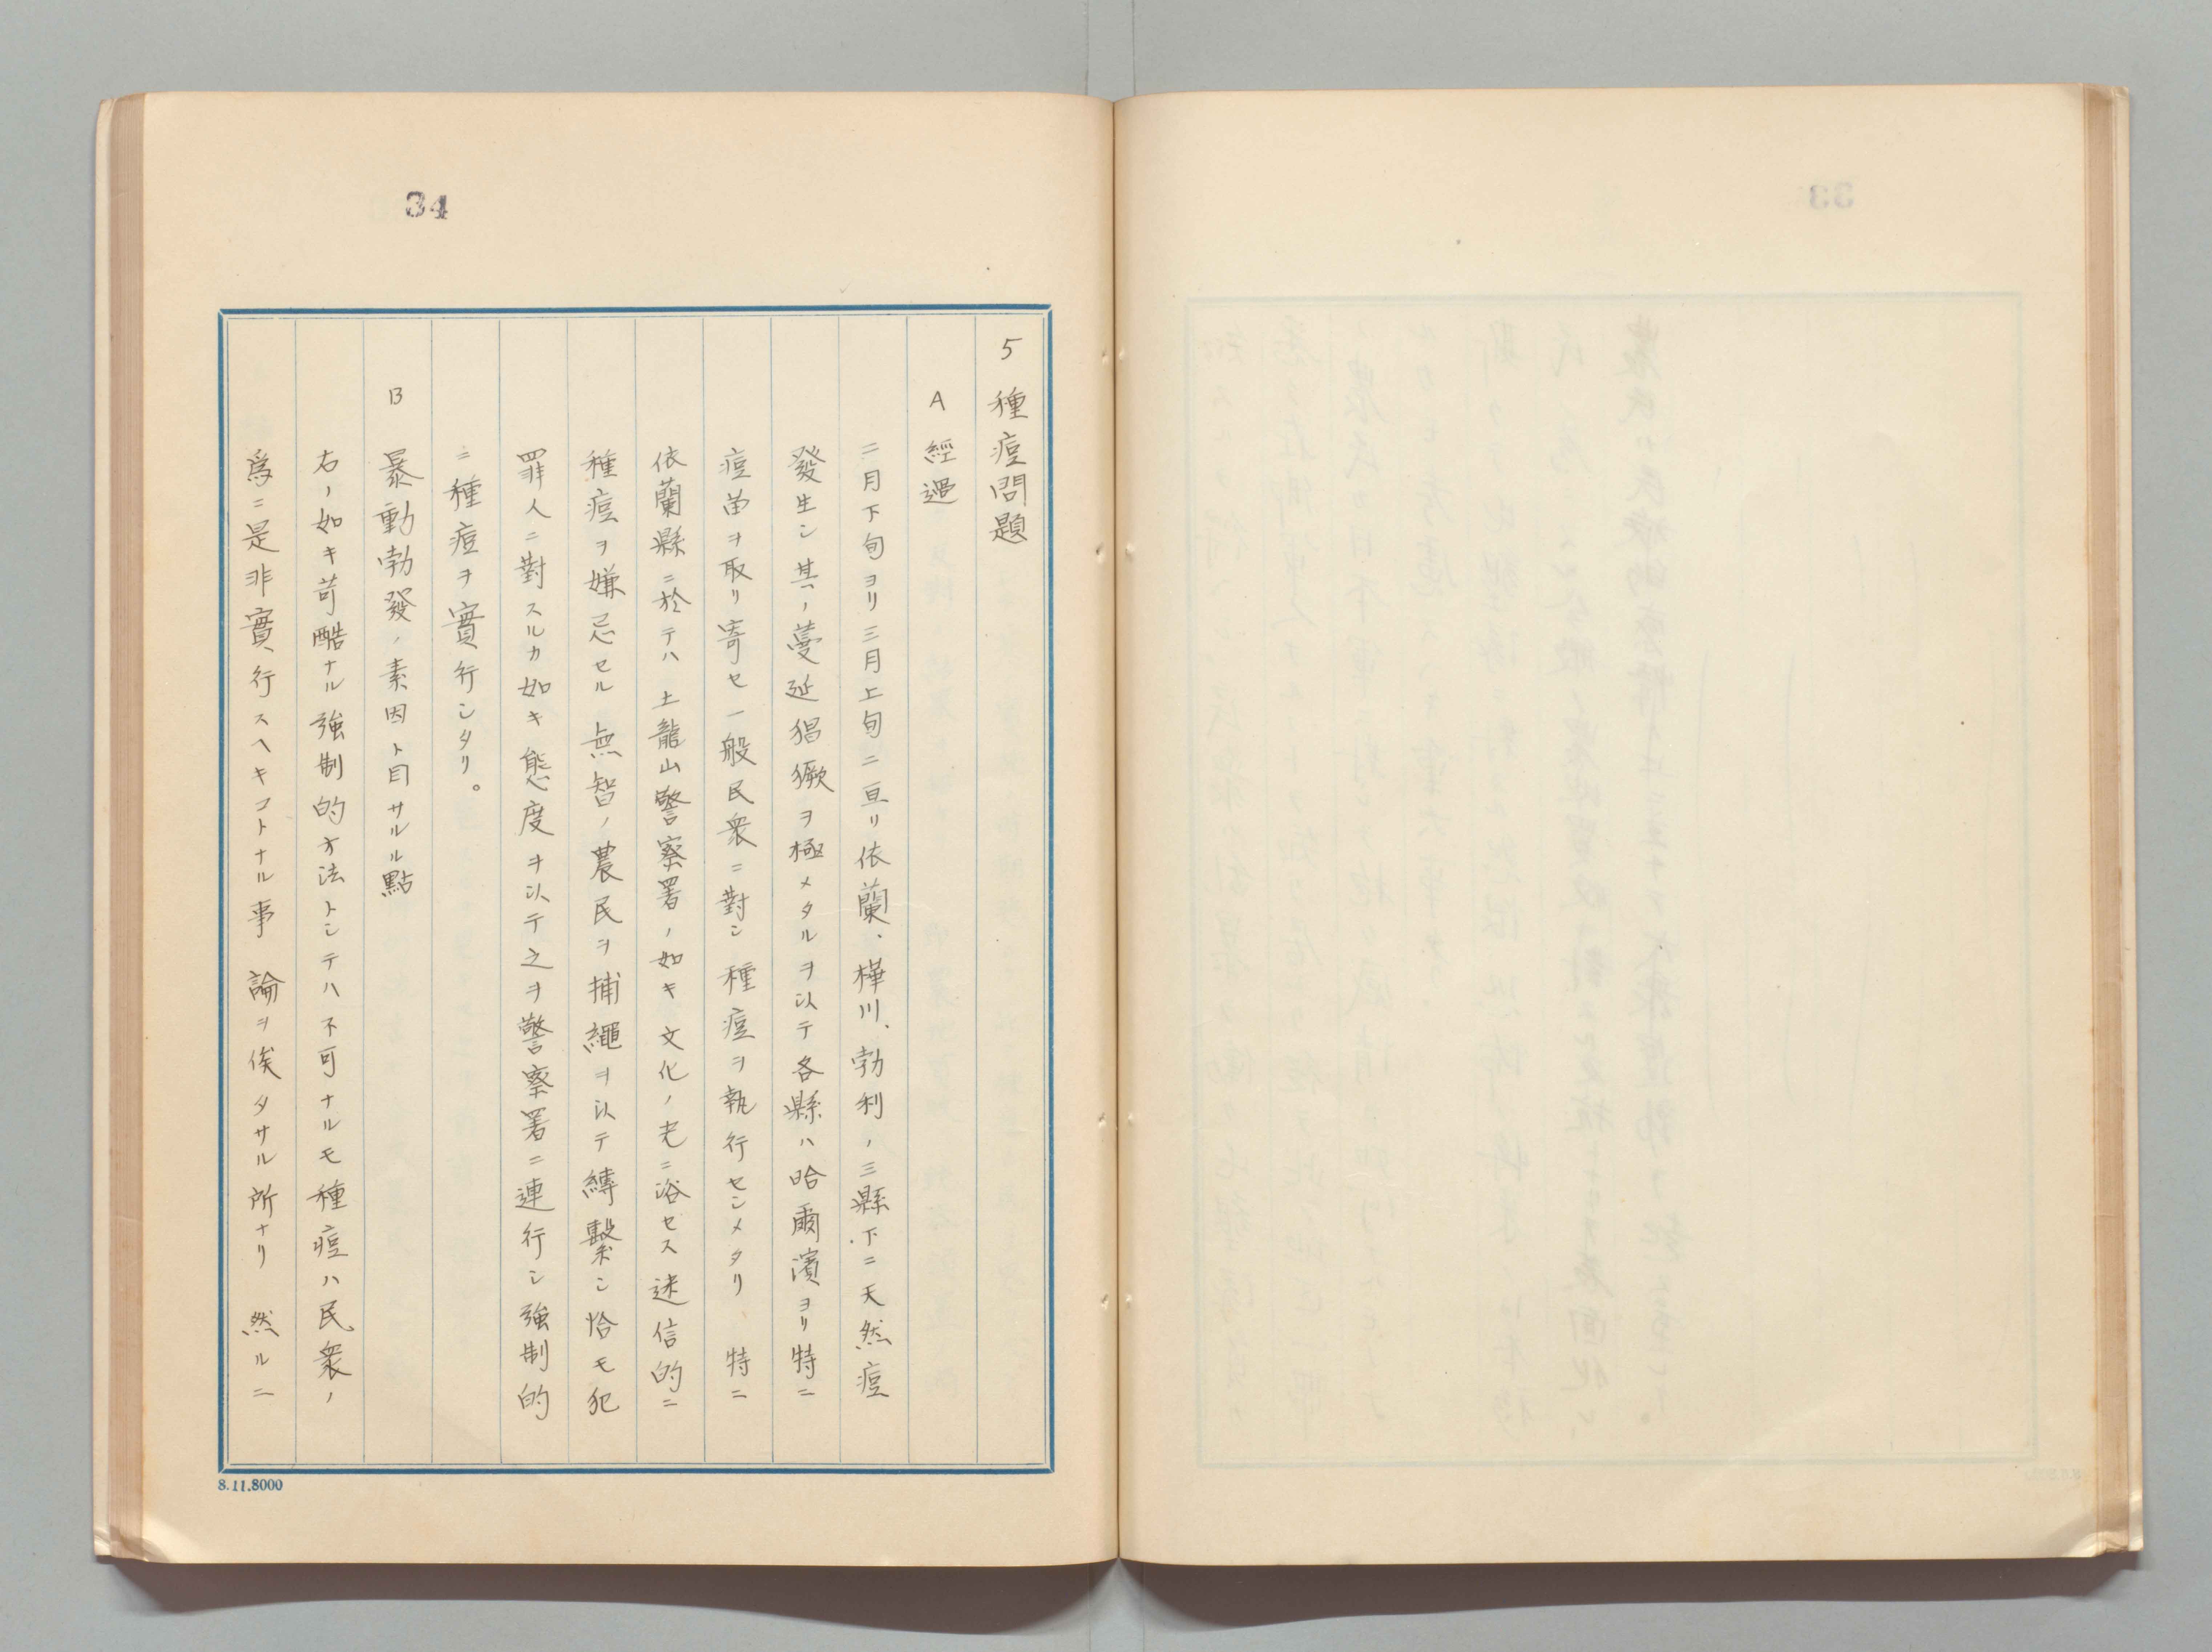 34
5 種痘問題
A 經過
二月下旬ヨリ三月上旬ニ亘リ依蘭、樺川、勃利ノ三縣下ニ天然痘
發生シ其ノ蔓延猖獗ヲ極メタルヲ以テ各縣ハ哈爾濱ヨリ特ニ
痘苗ヲ取リ寄セ一般民衆ニ對シ種痘ヲ執行センメタリ 特ニ
依蘭縣ニ於テハ土龍山警察署ノ如キ文化ノ光ニ浴セス迷信的ニ
種痘ヲ嫌忌セル無智ノ農民ヲ捕繩ヲ以テ縛繫シ恰モ犯
罪人ニ對スルカ如キ態度ヲ以テ之ヲ警察署ニ連行シ強制的
ニ種痘ヲ實行シタリ。
B 暴動勃發ノ素因ト目サルル點
右ノ如キ苛酷ナル強制的方法トシテハ不可ナルモ種痘ハ民衆ノ
爲ニ是非實行スヘキコトナル事 論ヲ俟タサル所ナリ 然ルニ
8.11.8000